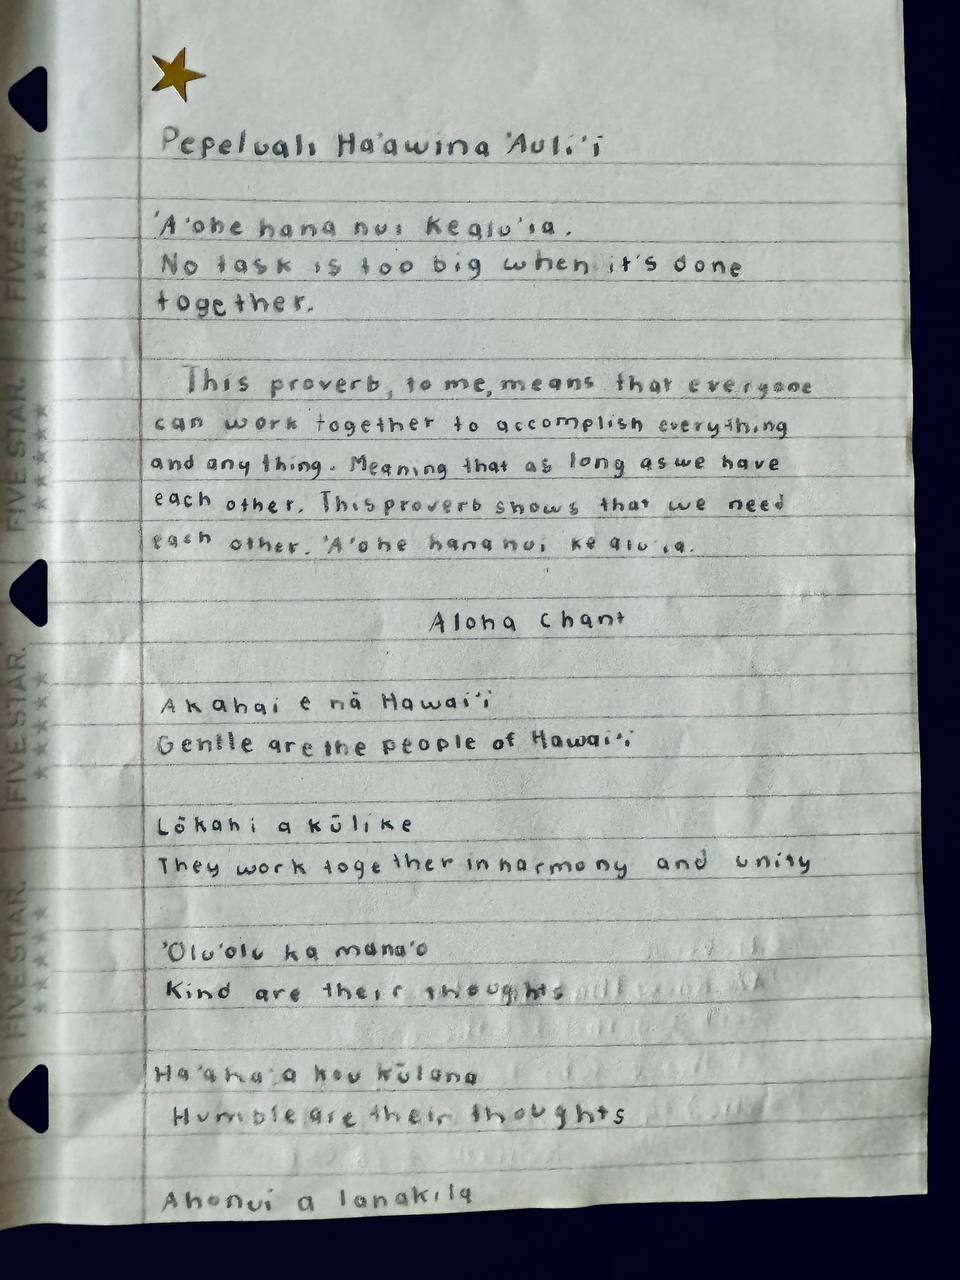 Pepeluali Ha'awina 'Auli'i
'A'ohe hana nui ke alu'ia.
No task is too big when it's done
together.
This proverb, to me, means that everyone
can work together to accomplish everything
and any thing. Meaning that as long as we have
each other. This proverb shows that we need
each other. 'A'ohe hana nui ke alu'ia.
Aloha Chant
Akahai e nā Hawai'i
Gentle are the people of Hawai'i
Lōkahi a kūlike
They work together in harmony and unity
'Olu'olu ka mana'o
Kind are their thoughts
Ha'aha'a kou kūlana
Humble are their thoughts
Ahonui a lanakila
FIVE STAR.
FIVE STAR.
FIVE STAR.
FIVE STAR.